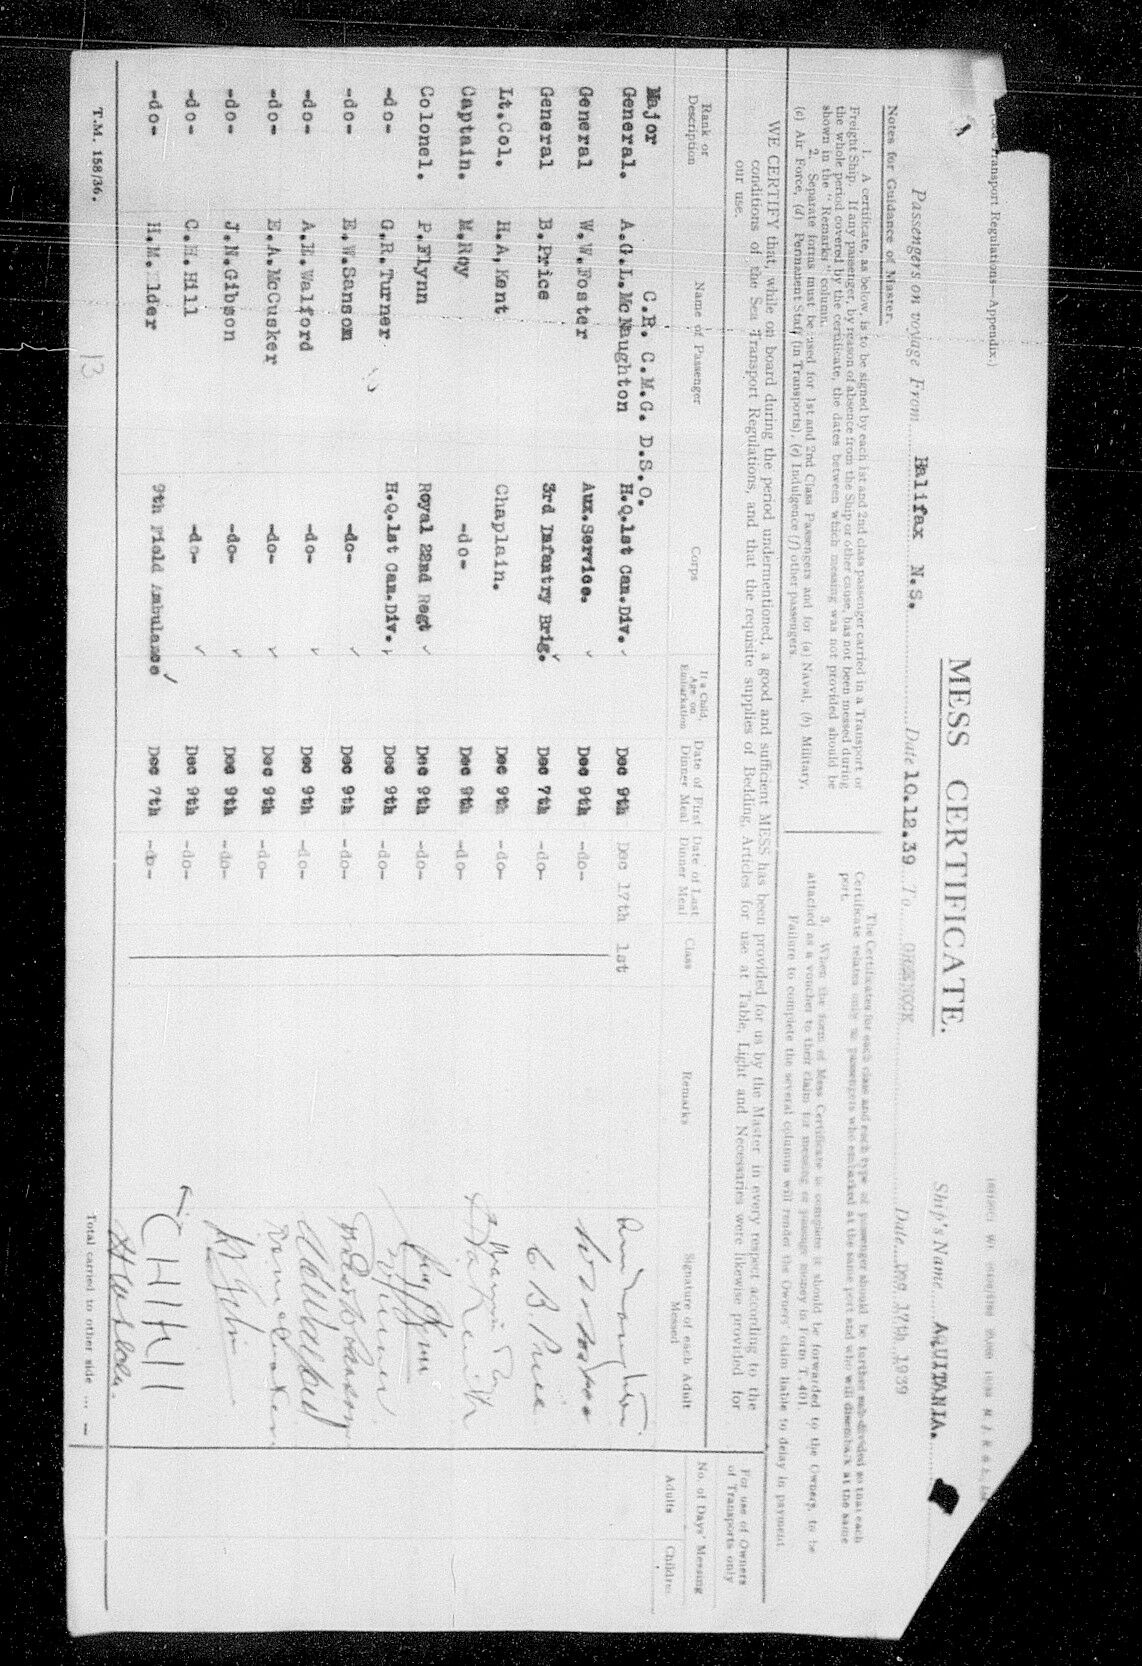 Transport Regulations—Appendix.)
MESS CERTIFICATE.
Ship's Name AQUITANIA.
Passengers on voyage From Halifax N.S. Date 10.12.39 To GREENOCK Date Dec 17th 1939
Notes for Guidance of Master.
1. A certificate, as below, is to be signed by each 1st and 2nd class passenger carried in a Transport or
Freight Ship. If any passenger, by reason of absence from the Ship or other cause, has not been messed during
the whole period covered by the certificate, the dates between which messing was not provided should be
shown in the "Remarks" column.
2. Separate forms must be used for 1st and 2nd Class Passengers and for (a) Naval, (b) Military,
(c) Air Force, (d) Permanent Staff (in Transports), (e) Indulgence (f) other passengers.
The Certificates for each class and each type of passenger should be further sub-divided so that each
Certificate relates only to passengers who embarked at the same port and who will disembark at the same
port.
3. When the form of Mess Certificate is complete it should be forwarded to the Owners, to be
attached as a voucher to their claim for messing or passage money in Form T.401.
Failure to complete the several columns will render the Owners' claim liable to delay in payment
WE CERTIFY that, while on board during the period undermentioned, a good and sufficient MESS has been provided for us by the Master in every respect according to the
conditions of the Sea Transport Regulations, and that the requisite supplies of Bedding, Articles for use at Table, Light and Necessaries were likewise provided for
our use.
Rank or Description
Name of Passenger
Corps
If a Child, Age on Embarkation
Date of First Dinner Meal
Date of Last Dinner Meal
Class
Remarks
Signature of each Adult Messed
For use of Owners of Transports only
No. of Days' Messing
Adults
Children
Major C.B. C.M.G. D.S.O.
General. A.G.L.McNaughton H.Q.1st Can.Div. Dec 9th Dec 17th 1st
General W.W.Foster Aux.Service. Dec 9th -do- W W Foster
General B.Price 3rd Infantry Brig. Dec 7th -do- C B Price
Lt.Col. H.A.Kent Chaplain. Dec 9th -do-
Captain. M.Roy -do- Dec 9th -do-
Colonel. P.Flynn Royal 22nd Regt Dec 9th -do-
-do- G.R.Turner H.Q.1st Can.Div. Dec 9th -do-
-do- E.W.Sansom -do- Dec 9th -do-
-do- A.E.Walford -do- Dec 9th -do-
-do- E.A.McCusker -do- Dec 9th -do-
-do- J.N.Gibson -do- Dec 9th -do-
-do- C.H.Hill -do- Dec 9th -do- C H Hill
-do- H.M. lder 9th Field Ambulance Dec 7th -do-
Total carried to other side ... —
T.M. 158/36.
13